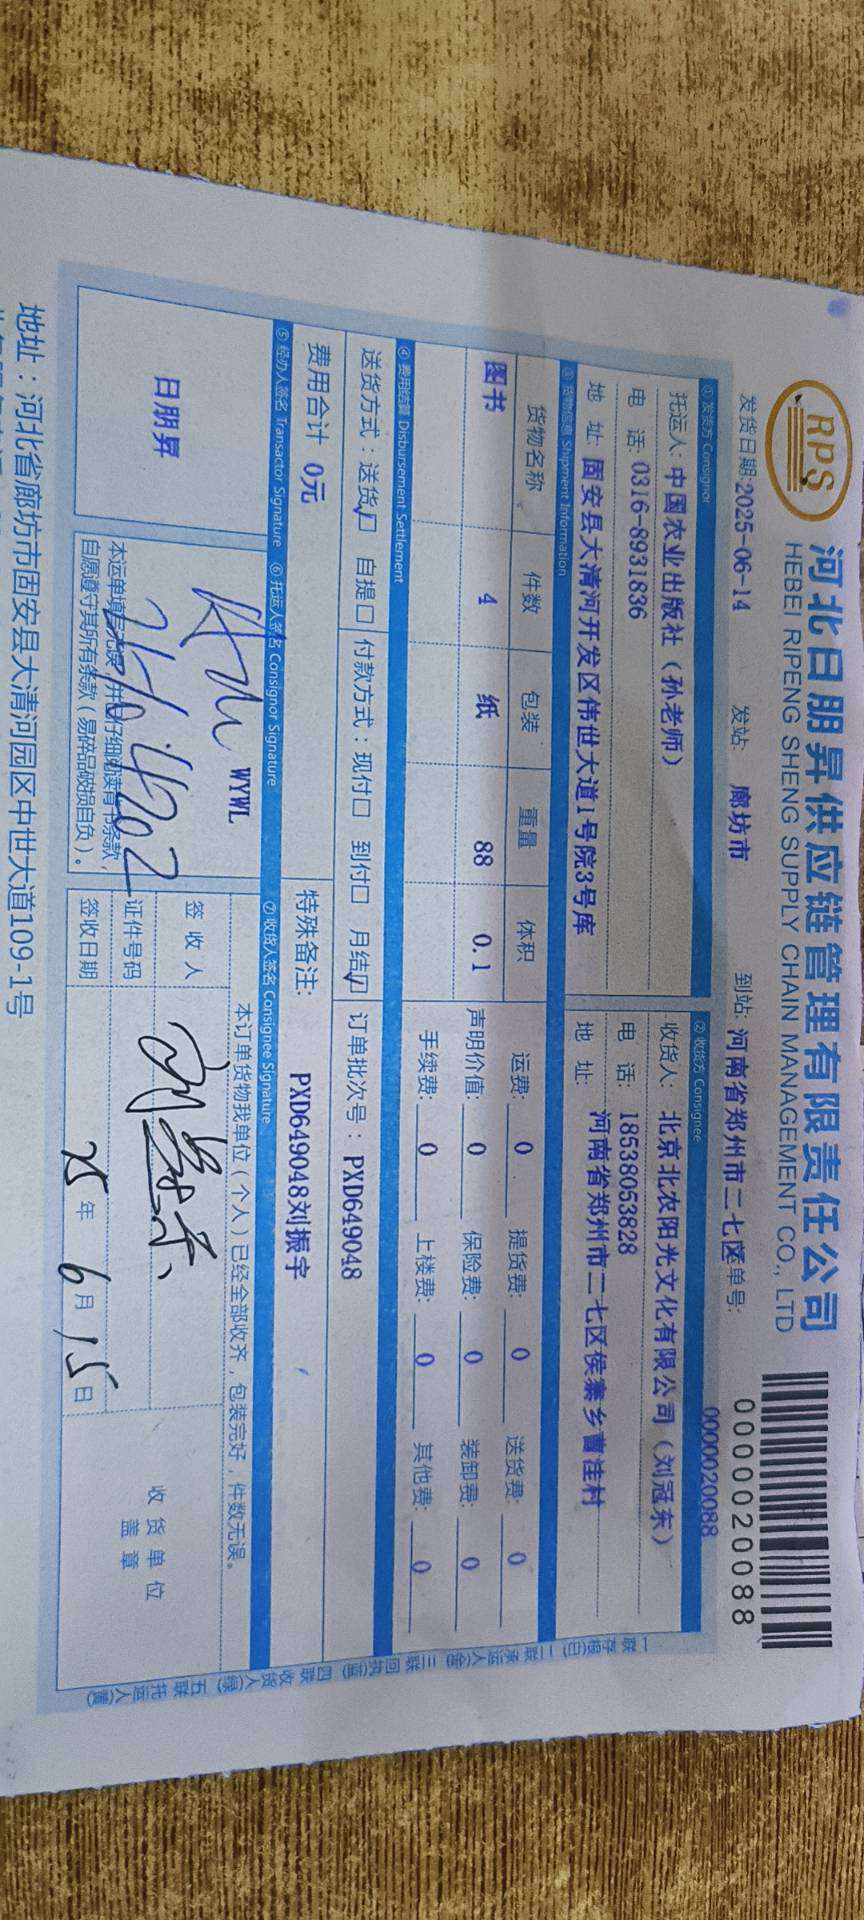 RPS
河北日朋昇供应链管理有限责任公司
HEBEI RIPENG SHENG SUPPLY CHAIN MANAGEMENT CO., LTD
0000020088
发货日期:2025-06-14 发站: 廊坊市 到站: 河南省郑州市二七区 单号: 0000020088
① 发货方 Consignor ② 收货方 Consignee
托运人: 中国农业出版社（孙老师） 收货人: 北京北农阳光文化有限公司（刘冠东）
电 话: 0316-8931836 电 话: 18538053828
地 址: 固安县大清河开发区伟世大道1号院3号库 地 址: 河南省郑州市二七区侯寨乡曹洼村
③ 货物信息 Shipment Information
货物名称 件数 包装 重量 体积 运费: 0 提货费: 0 送货费: 0
图书 4 纸 88 0.1 声明价值: 0 保险费: 0 装卸费: 0
手续费: 0 上楼费: 0 其他费: 0
④ 费用结算 Disbursement Settlement
送货方式: 送货☑ 自提□ 付款方式: 现付□ 到付□ 月结☑ 订单批次号: PXD649048
费用合计 0元 特殊备注: PXD649048刘振宇
⑤ 经办人签名 Transactor Signature ⑥ 托运人签名 Consignor Signature ⑦ 收货人签名 Consignee Signature
日朋昇
WYWL
本运单填写无误，并已仔细阅读背书条款，
自愿遵守其所有条款（易碎品破损自负）。
本订单货物我单位（个人）已经全部收齐，包装完好，件数无误。
签 收 人
证件号码
签收日期 25年 6月 15日
收货单位
盖章
一联存根(白) 二联承运人(金) 三联回执(蓝) 四联收货人(绿) 五联托运人(黄)
地址：河北省廊坊市固安县大清河园区中世大道109-1号